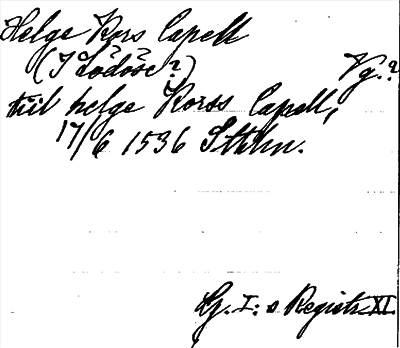 Helge Kors Capell
(I Lödöse?) Vg.?
till helge Korss Capell,
17/6 1536 Sthlm.
G. I:s Registr. XI.